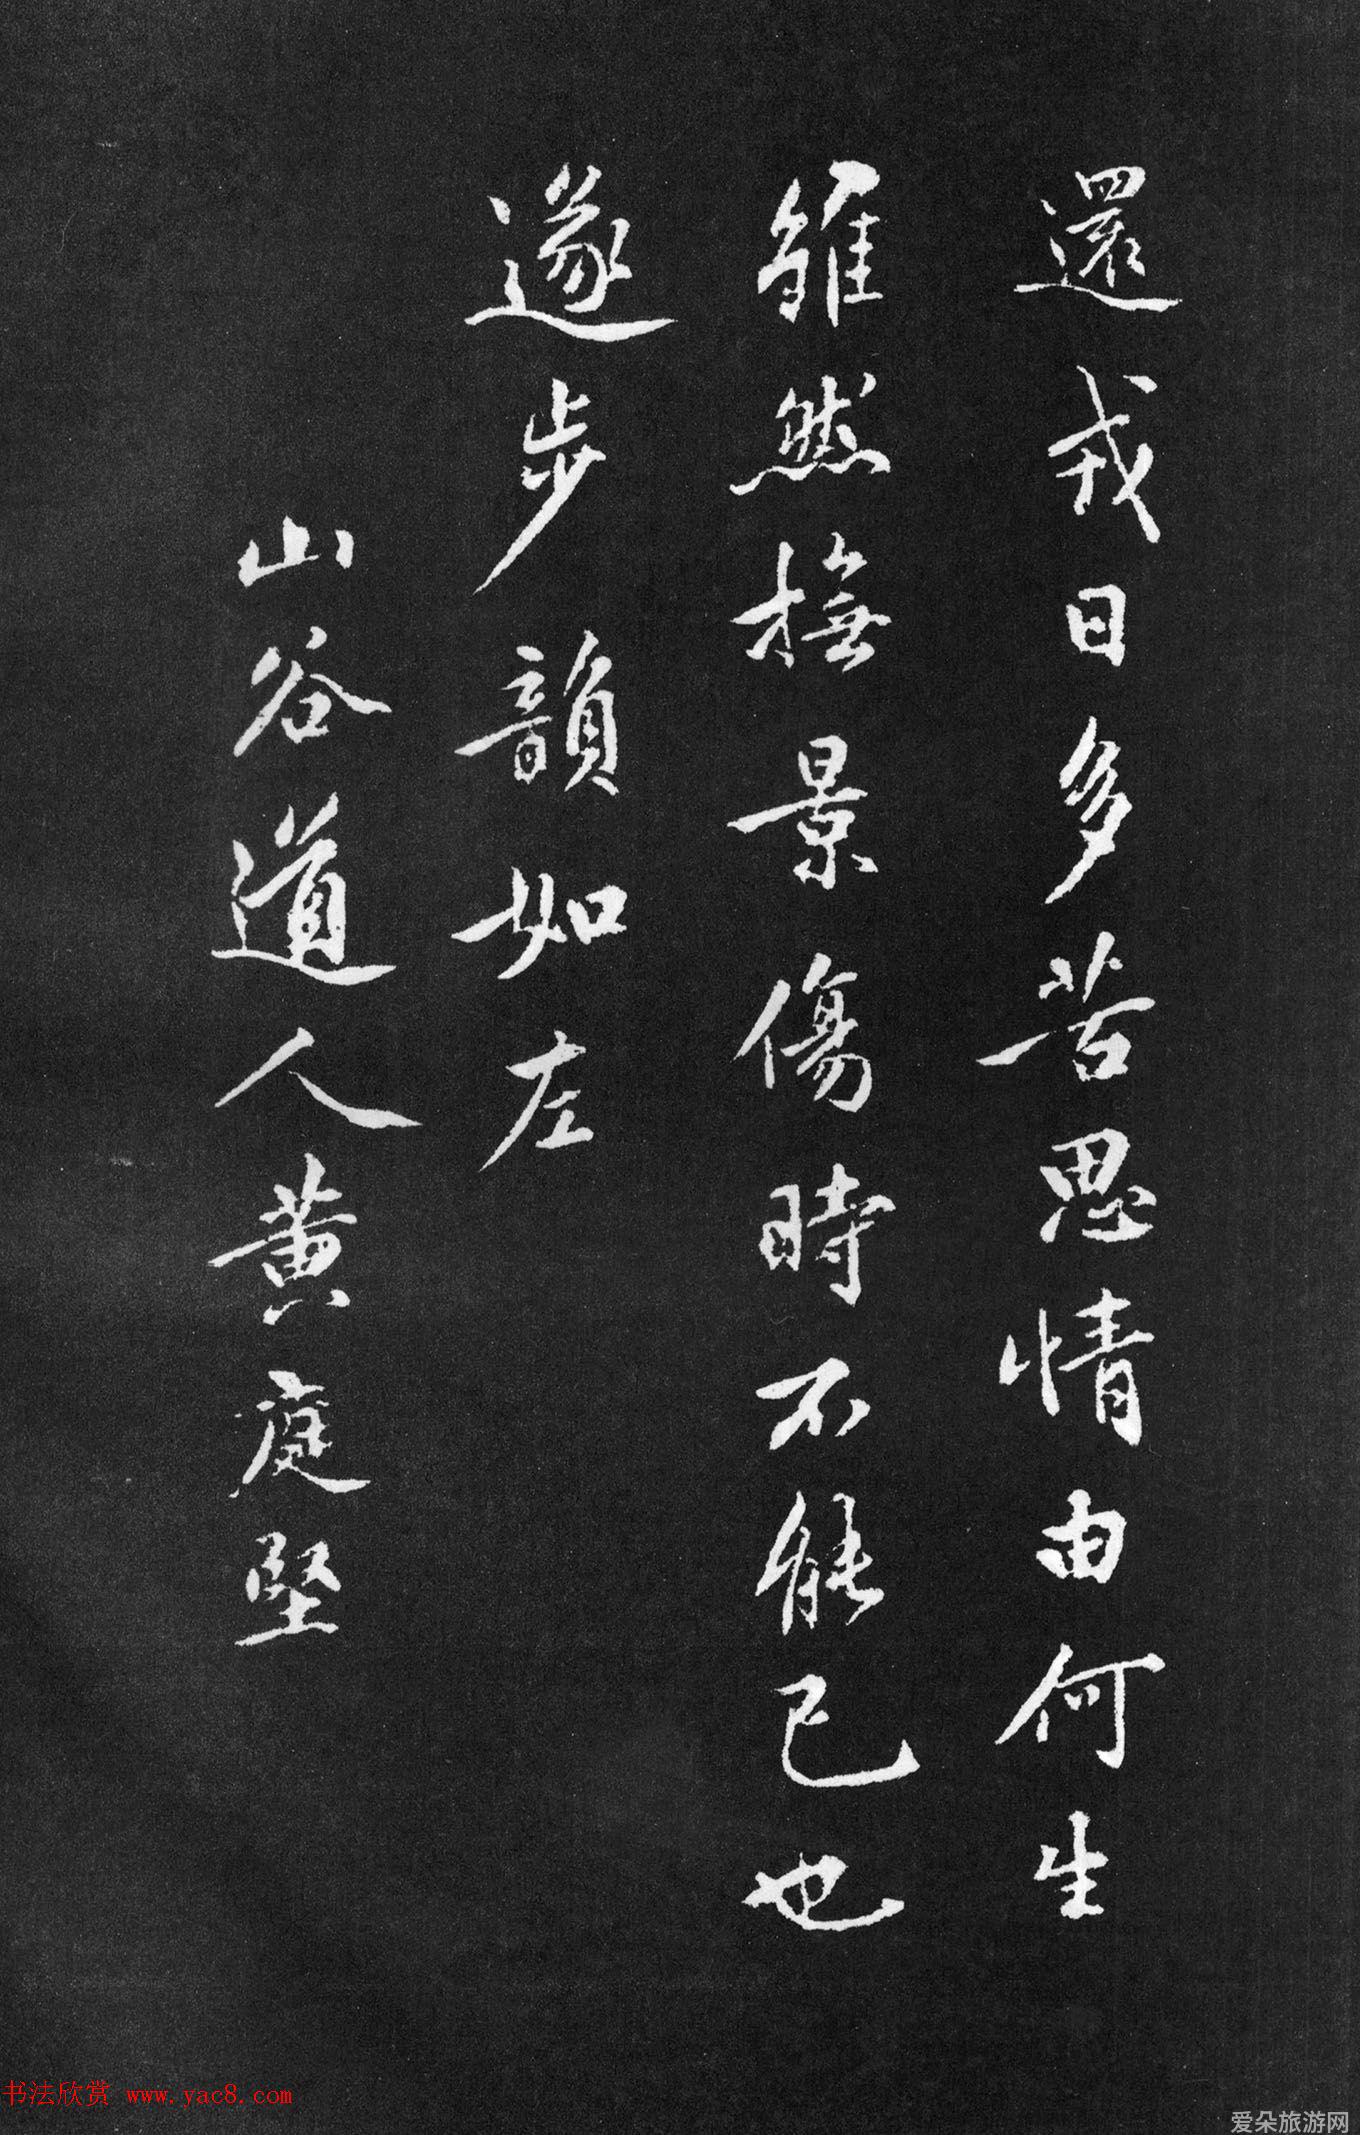 還戎日多苦思情由何生
雖然撫景傷時不能已也
遂步韻如左
山谷道人黄庭堅
书法欣赏 www.yac8.com
爱朵旅游网